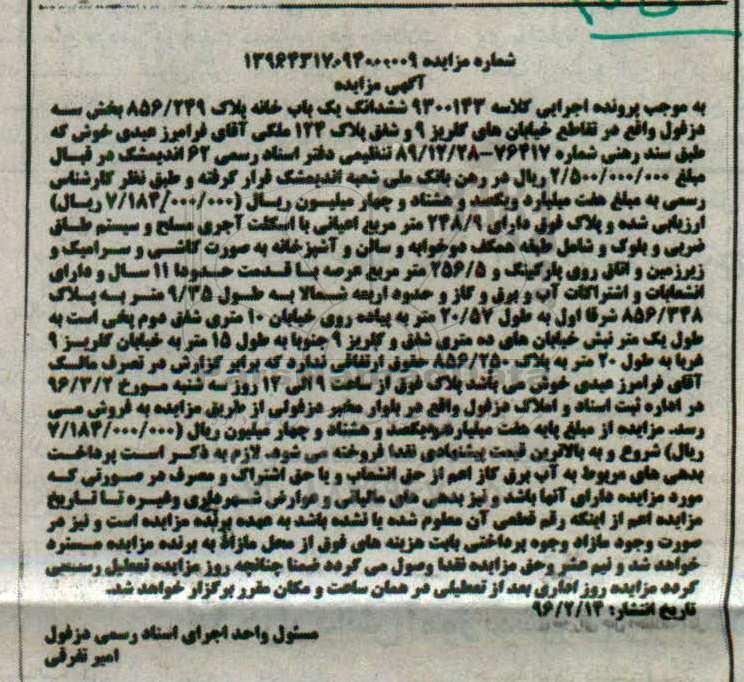 شماره مزایده ۱۳۹۶۴۳۱۷۰۹۴۰۰۰۰۰۹
آگهی مزایده
به موجب پرونده اجرایی کلاسه ۹۳۰۰۱۴۳ ششدانگ یک باب خانه پلاک ۸۵۶/۲۴۹ بخش سه
دزفول واقع در تقاطع خیابان های گلریز ۹ و شفق پلاک ۱۲۴ ملکی آقای فرامرز عبدی خوش که
طبق سند رهنی شماره ۷۶۴۱۷-۸۹/۱۲/۲۸ تنظیمی دفتر اسناد رسمی ۶۲ اندیمشک در قبال
مبلغ ۲/۵۰۰/۰۰۰/۰۰۰ ریال در رهن بانک ملی شعبه اندیمشک قرار گرفته و طبق نظر کارشناس
رسمی به مبلغ هفت میلیارد ویکصد و هشتاد و چهار میلیون ریال (۷/۱۸۴/۰۰۰/۰۰۰ ریال)
ارزیابی شده و پلاک فوق دارای ۲۴۸/۹ متر مربع اعیانی با اسکلت آجری مسلح و سیستم طاق
ضربی و بلوک و شامل طبقه همکف دوخوابه و سالن و آشپزخانه به صورت کاشی و سرامیک و
زیرزمین و اتاق روی پارکینگ و ۲۵۶/۵ متر مربع عرصه با قدمت حدودا ۱۱ سال و دارای
انشعابات و اشتراکات آب و برق و گاز و حدود اربعه شمالا به طول ۹/۳۵ متر به پلاک
۸۵۶/۳۴۸ شرقا اول به طول ۲۰/۵۷ متر به پیاده روی خیابان ۱۰ متری شفق دوم پخی است به
طول یک متر نبش خیابان های ده متری شفق و گلریز ۹ جنوبا به طول ۱۵ متر به خیابان گلریز ۹
غربا به طول ۲۰ متر به پلاک ۸۵۶/۲۵۰ حقوق ارتفاقی ندارد که برابر گزارش در تصرف مالک
آقای فرامرز عبدی خوش می باشد پلاک فوق از ساعت ۹ الی ۱۲ روز سه شنبه مورخ ۹۶/۳/۲
در اداره ثبت اسناد و املاک دزفول واقع در بلوار مخبر دزفولی از طریق مزایده به فروش می
رسد. مزایده از مبلغ پایه هفت میلیارد ویکصد و هشتاد و چهار میلیون ریال (۷/۱۸۴/۰۰۰/۰۰۰
ریال) شروع و به بالاترین قیمت پیشنهادی نقدا فروخته می شود. لازم به ذکر است پرداخت
بدهی های مربوط به آب برق گاز اعم از حق انشعاب و یا حق اشتراک و مصرف در صورتی که
مورد مزایده دارای آنها باشد و نیز بدهی های مالیاتی و عوارض شهرداری وغیره تا تاریخ
مزایده اعم از اینکه رقم قطعی آن معلوم شده یا نشده باشد به عهده برنده مزایده است و نیز در
صورت وجود مازاد وجوه پرداختی بابت هزینه های فوق از محل مازاد به برنده مزایده مسترد
خواهد شد و نیم عشر وحق مزایده نقدا وصول می گردد ضمنا چنانچه روز مزایده تعطیل رسمی
گردد مزایده روز اداری بعد از تعطیلی در همان ساعت و مکان مقرر برگزار خواهد شد.
تاریخ انتشار: ۹۶/۲/۱۴
مسئول واحد اجرای اسناد رسمی دزفول
امیر تفرقی